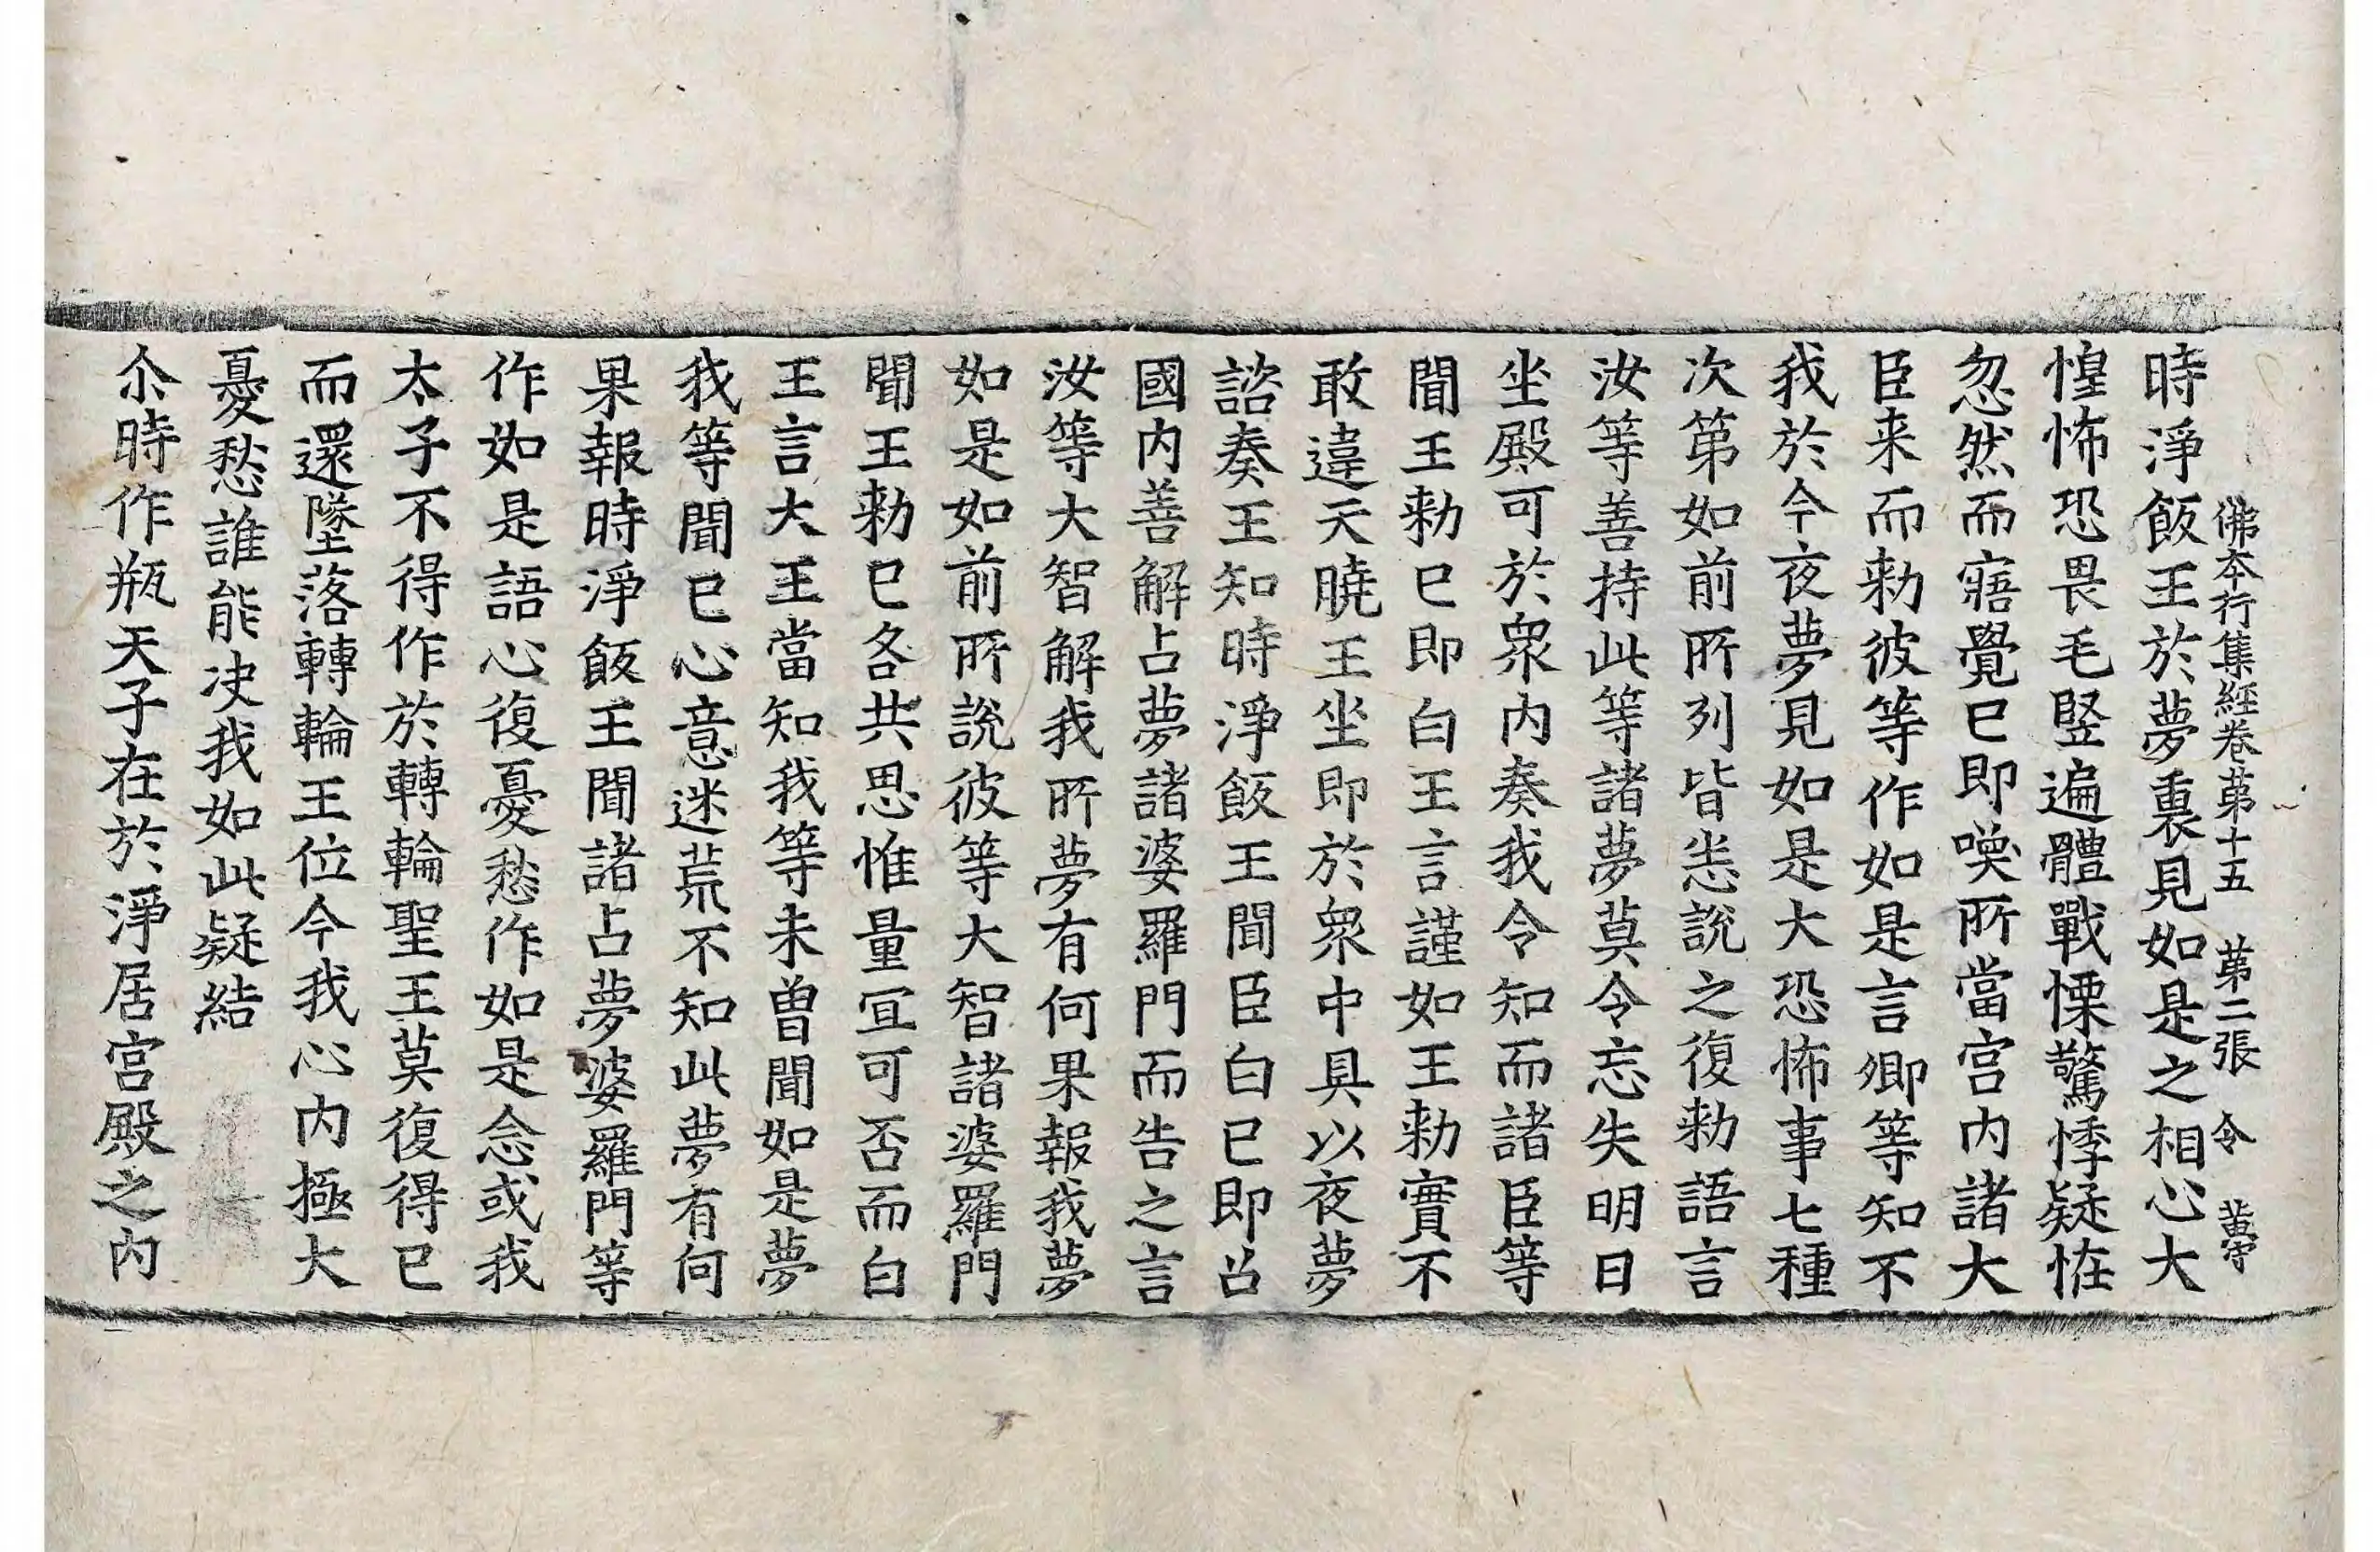 佛本行集經卷苐十五　苐二張　令
時淨飯王於夢裏見如是之相心大
惶怖恐畏毛竪遍體戰慄驚悸疑恠
忽然而寤覺已即喚所當宮内諸大
臣来而勑彼等作如是言卿等知不
我於今夜夢見如是大恐怖事七種
次第如前所列皆悉說之復勑語言
汝等善持此等諸夢莫令忘失明日
坐殿可於衆内奏我令知而諸臣等
聞王勑已即白王言謹如王勑實不
敢違天曉王坐即於衆中具以夜夢
諮奏王知時淨飯王聞臣白已即召
國内善解占夢諸婆羅門而告之言
汝等大智解我所夢有何果報我夢
如是如前所說彼等大智諸婆羅門
聞王勑已各共思惟量宜可否而白
王言大王當知我等未曾聞如是夢
我等聞已心意迷荒不知此夢有何
果報時淨飯王聞諸占夢婆羅門等
作如是語心復憂愁作如是念或我
太子不得作於轉輪聖王莫復得已
而還墜落轉輪王位今我心内極大
憂愁誰能决我如此疑結
尒時作瓶天子在於淨居宮殿之内